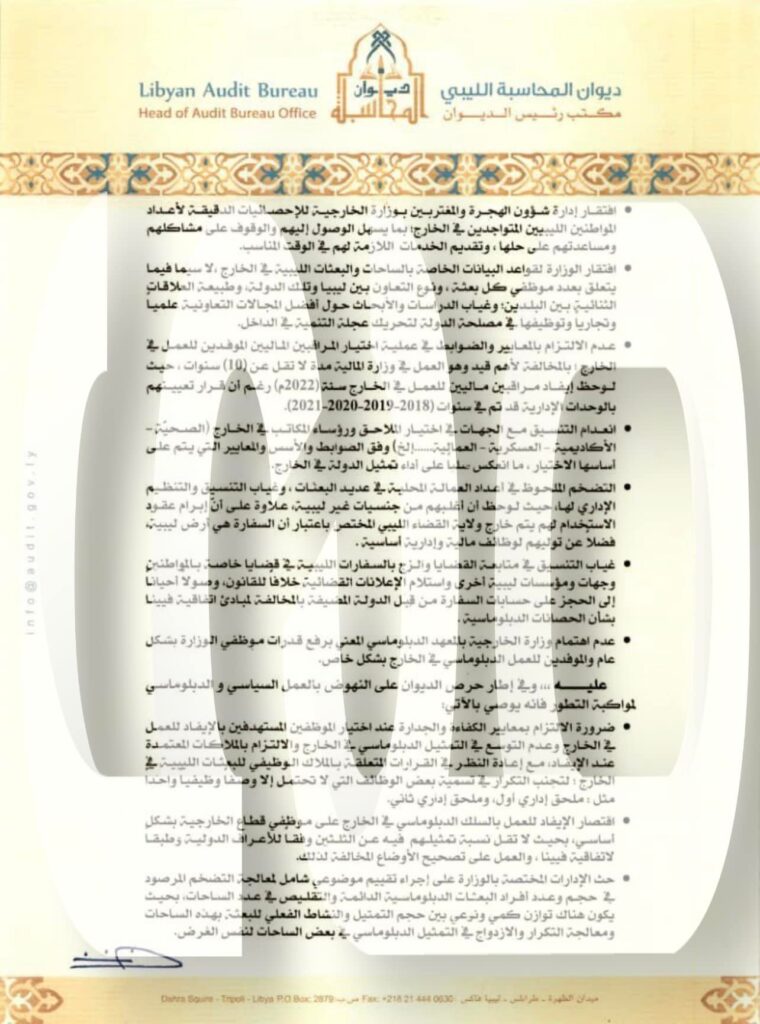 Libyan Audit Bureau
Head of Audit Bureau Office
ديوان المحاسبة
ديوان المحاسبة الليبي
مكتب رئيس الديوان
• افتقار إدارة شؤون الهجرة والمغتربين بوزارة الخارجية للإحصائيات الدقيقة لأعداد
المواطنين الليبيين المتواجدين في الخارج؛ بما يسهل الوصول إليهم والوقوف على مشاكلهم
ومساعدتهم على حلها، وتقديم الخدمات اللازمة لهم في الوقت المناسب.
• افتقار الوزارة لقواعد البيانات الخاصة بالساحات والبعثات الليبية في الخارج، لا سيما فيما
يتعلق بعدد موظفي كل بعثة، ونوع التعاون بين ليبيا وتلك الدولة، وطبيعة العلاقات
الثنائية بين البلدين؛ وغياب الدراسات والأبحاث حول أفضل المجالات التعاونية علميا
وتجاريا وتوظيفها في مصلحة الدولة لتحريك عجلة التنمية في الداخل.
• عدم الالتزام بالمعايير والضوابط في عملية اختيار المراقبين الماليين الموفدين للعمل في
الخارج؛ بالمخالفة لأهم قيد وهو العمل في وزارة المالية مدة لا تقل عن (10) سنوات، حيث
لوحظ إيفاد مراقبين ماليين للعمل في الخارج سنة (2022م) رغم أن قرار تعيينهم
بالوحدات الإدارية قد تم في سنوات (2018-2019-2020-2021).
• انعدام التنسيق مع الجهات في اختيار الملاحق ورؤساء المكاتب في الخارج (الصحية -
الأكاديمية - العسكرية - العمالية.....إلخ) وفق الضوابط والأسس والمعايير التي يتم على
أساسها الاختيار، ما انعكس سلبا على أداء تمثيل الدولة في الخارج.
• التضخم الملحوظ في أعداد العمالة المحلية في عديد البعثات، وغياب التنسيق والتنظيم
الإداري لها، حيث لوحظ أن أغلبهم من جنسيات غير ليبية، علاوة على أنّ إبرام عقود
الاستخدام لهم يتم خارج ولاية القضاء الليبي المختص باعتبار أن السفارة هي أرض ليبية،
فضلا عن توليهم لوظائف مالية وإدارية أساسية.
• غياب التنسيق في متابعة القضايا والزج بالسفارات الليبية في قضايا خاصة بالمواطنين
وجهات ومؤسسات ليبية أخرى واستلام الإعلانات القضائية خلافا للقانون، وصولا أحيانا
إلى الحجز على حسابات السفارة من قبل الدولة المضيفة بالمخالفة لمبادئ اتفاقية فيينا
بشأن الحصانات الدبلوماسية.
• عدم اهتمام وزارة الخارجية بالمعهد الدبلوماسي المعني برفع قدرات موظفي الوزارة بشكل
عام والموفدين للعمل الدبلوماسي في الخارج بشكل خاص.
عليـــه ،،، وفي إطار حرص الديوان على النهوض بالعمل السياسي و الدبلوماسي
لمواكبة التطور فانه يوصي بالآتي:
• ضرورة الالتزام بمعايير الكفاءة والجدارة عند اختيار الموظفين المستهدفين بالإيفاد للعمل
في الخارج وعدم التوسع في التمثيل الدبلوماسي في الخارج والالتزام بالملاكات المعتمدة
عند الإيفاد، مع إعادة النظر في القرارات المتعلقة بالملاك الوظيفي للبعثات الليبية في
الخارج؛ لتجنب التكرار في تسمية بعض الوظائف التي لا تحتمل إلا وصفا وظيفيا واحدا
مثل: ملحق إداري أول، وملحق إداري ثاني.
• اقتصار الإيفاد للعمل بالسلك الدبلوماسي في الخارج على موظفي قطاع الخارجية بشكل
أساسي، بحيث لا تقل نسبة تمثيلهم فيه عن الثلثين وفقا للأعراف الدولية وطبقا
لاتفاقية فيينا، والعمل على تصحيح الأوضاع المخالفة لذلك.
• حث الإدارات المختصة بالوزارة على إجراء تقييم موضوعي شامل لمعالجة التضخم المرصود
في حجم وعدد أفراد البعثات الدبلوماسية الدائمة والتقليص في عدد الساحات، بحيث
يكون هناك توازن كمي ونوعي بين حجم التمثيل والنشاط الفعلي للبعثة بهذه الساحات
ومعالجة التكرار والازدواج في التمثيل الدبلوماسي في بعض الساحات لنفس الغرض.
info@audit.gov.ly
Dahra Squire - Tripoli - Libya P.O Box: 2879 ص.ب Fax: +218 21 444 0630 ميدان الظهرة - طرابلس - ليبيا فاكس